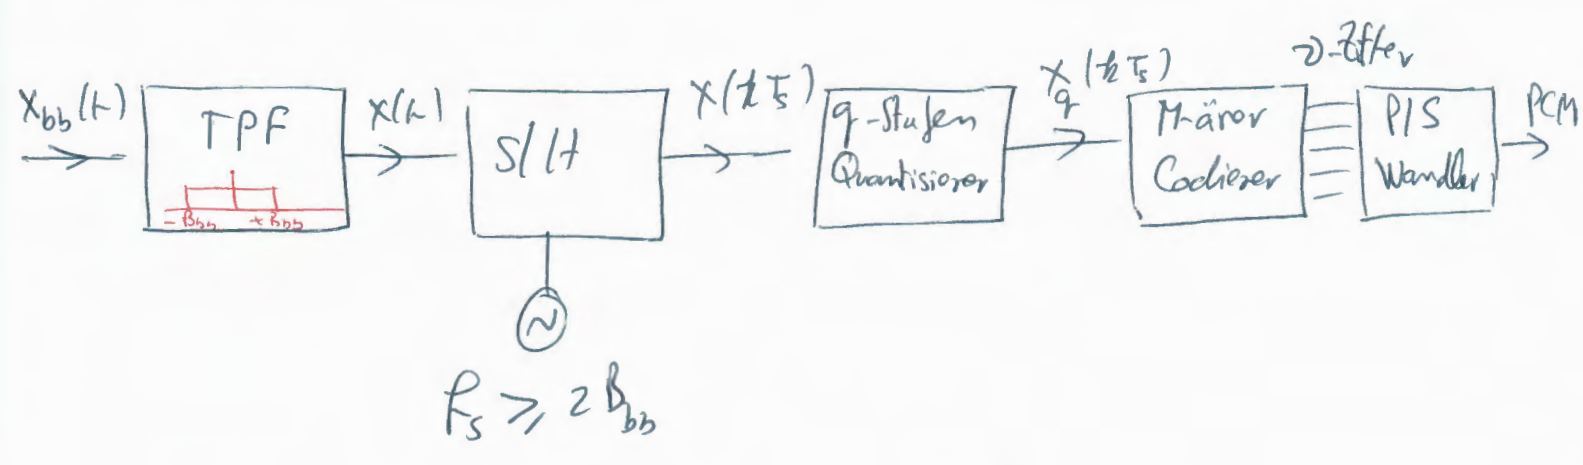 x_bb(t)
TPF
-B_bb +B_bb
x(t)
S/H
f_s ≥ 2 B_bb
x(kT_s)
q-Stufen
Quantisierer
x_q(kT_s)
M-ärer
Codierer
ν-Ziffer
P/S
Wandler
PCM